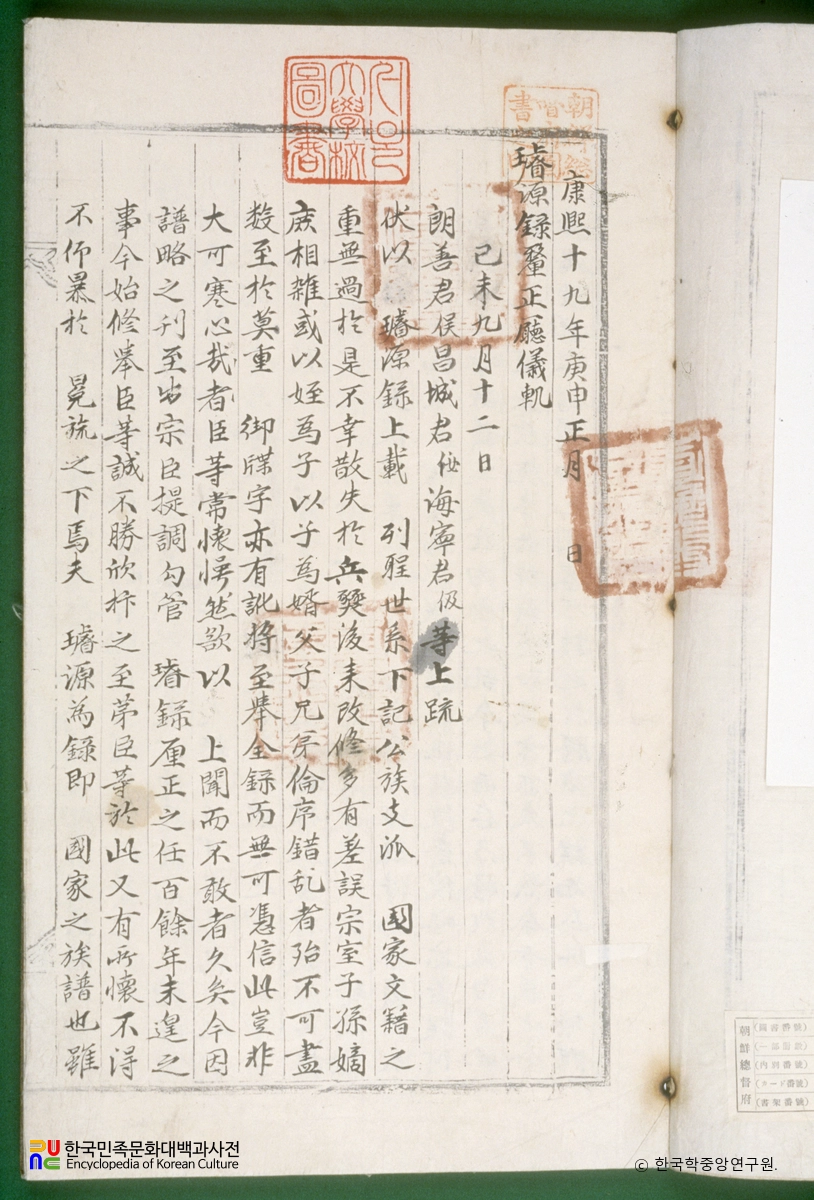 康熙十九年庚申正月 日
璿源錄釐正廳儀軌
己未九月十二日
朗善君俁昌城君佖海寧君伋等上疏
伏以 璿源錄上載 列聖世系下記公族支派 國家文籍之
重無過於是不幸散失於兵燹後來改修多有差誤宗室子孫嫡
庶相雜或以姪爲子以子爲婿父子兄弟倫序錯乱者殆不可盡
数至於莫重 御牒字亦有訛將至擧全録而無可憑信此豈非
大可寒心哉者臣等常懷慨然欲以 上聞而不敢者久矣今因
譜略之刊至出宗臣提調勾管 璿録厘正之任百餘年未遑之
事今始修擧臣等誠不勝欣抃之至苐臣等於此又有所懷不得
不仰暴於 冕旒之下焉夫 璿源爲録即 國家之族譜也雖
大學校
圖書
朝鮮總督府
(圖書番號)
(內別番號)
(カード番號)
(書架番號)
한국민족문화대백과사전
Encyclopedia of Korean Culture
© 한국학중앙연구원.